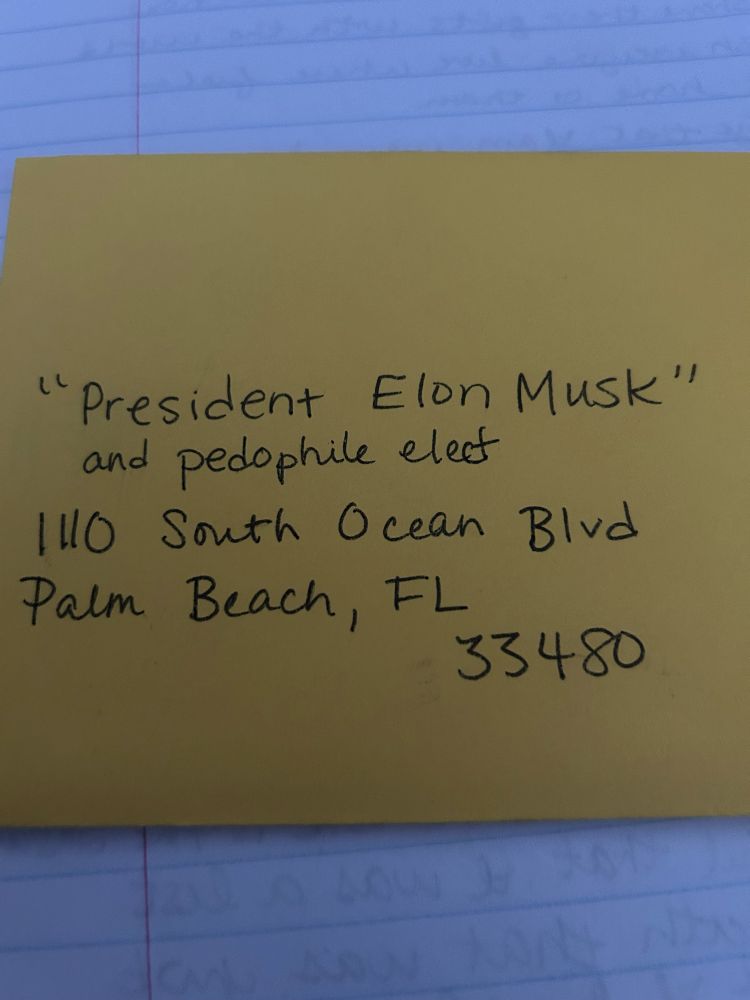 "President Elon Musk"
and pedophile elect
1110 South Ocean Blvd
Palm Beach, FL
33480